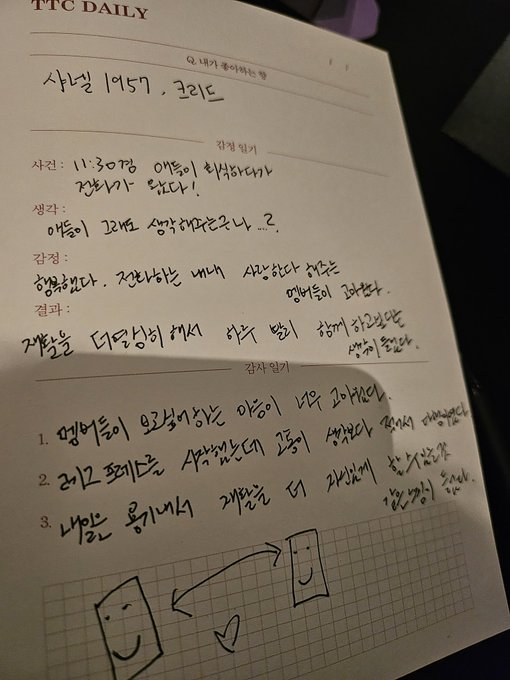 TTC DAILY
Q. 내가 좋아하는 향
샤넬 1957, 크리드
감정 일기
사건 : 11:30경 애들이 회식하다가
전화가 왔다!
생각 :
애들이 그래도 생각해주는구나 ...?
감정 :
행복했다. 전화하는 내내 사랑한다 해주는
멤버들이 고마웠다.
결과 :
재활을 더열심히 해서 하루 빨리 함께 하고싶다는
생각이 들었다.
감사 일기
1. 멤버들이 보고싶어하는 마음이 너무 고마웠다.
2. 레그 프레스를 시작했는데 고통이 생각보다 적어서 다행이었다
3. 내일은 용기내서 재활을 더 자신있게 할 수 있을것
같은 느낌이 들었다.